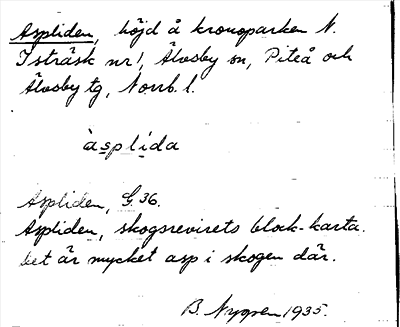 Aspliden, höjd å kronoparken N.
Isträsk nr 1, Älvsby sn, Piteå och
Älvsby tg, Norrb. l.
àsplída
Aspliden, G. 36.
Aspliden, skogsrevirets block-karta.
Det är mycket asp i skogen där.
B. Nygren 1935.